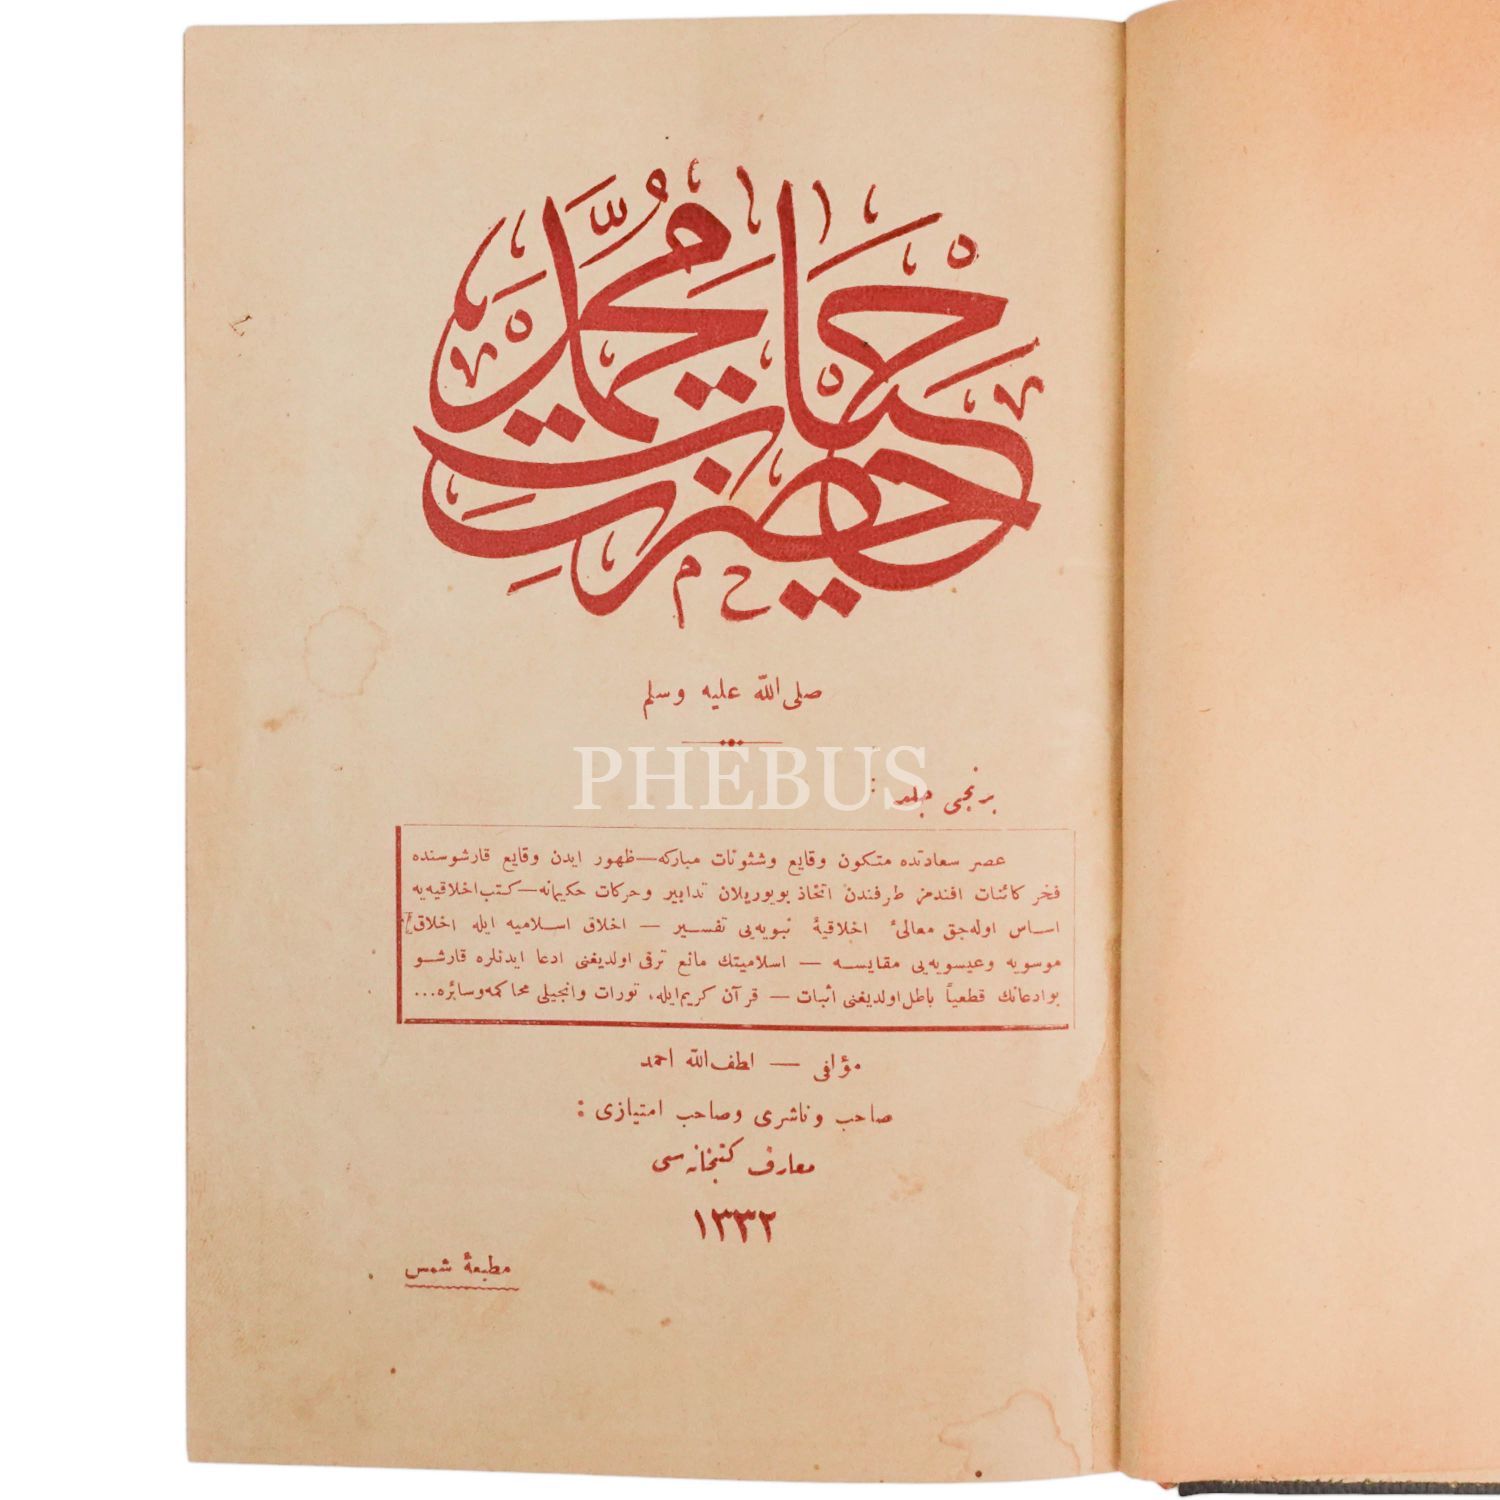 حیات حضرت محمد
صلی الله علیه وسلم
PHEBUS
برنجی جلد :
عصر سعادتده متکون وقایع وشئونات مبارکه — ظهور ایدن وقایع قارشوسنده
فخر کائنات افندمز طرفندن اتخاذ بویوریلان تدابیر وحرکات حکیمانه — کتب اخلاقیه‌یه
اساس اوله‌جق معالیٔ اخلاقیهٔ نبویه‌یی تفسیر — اخلاق اسلامیه ایله اخلاق
موسویه وعیسویه‌یی مقایسه — اسلامیتك مانع ترقی اولدیغنی ادعا ایدنلره قارشو
بوادعانك قطعیاً باطل اولدیغنی اثبات — قرآن کریم ایله، تورات وانجیلی محاکمه وسائره...
مؤلفی — لطف الله احمد
صاحب وناشری وصاحب امتیازی :
معارف کتبخانه‌سی
١٣٣٢
مطبعهٔ شمس